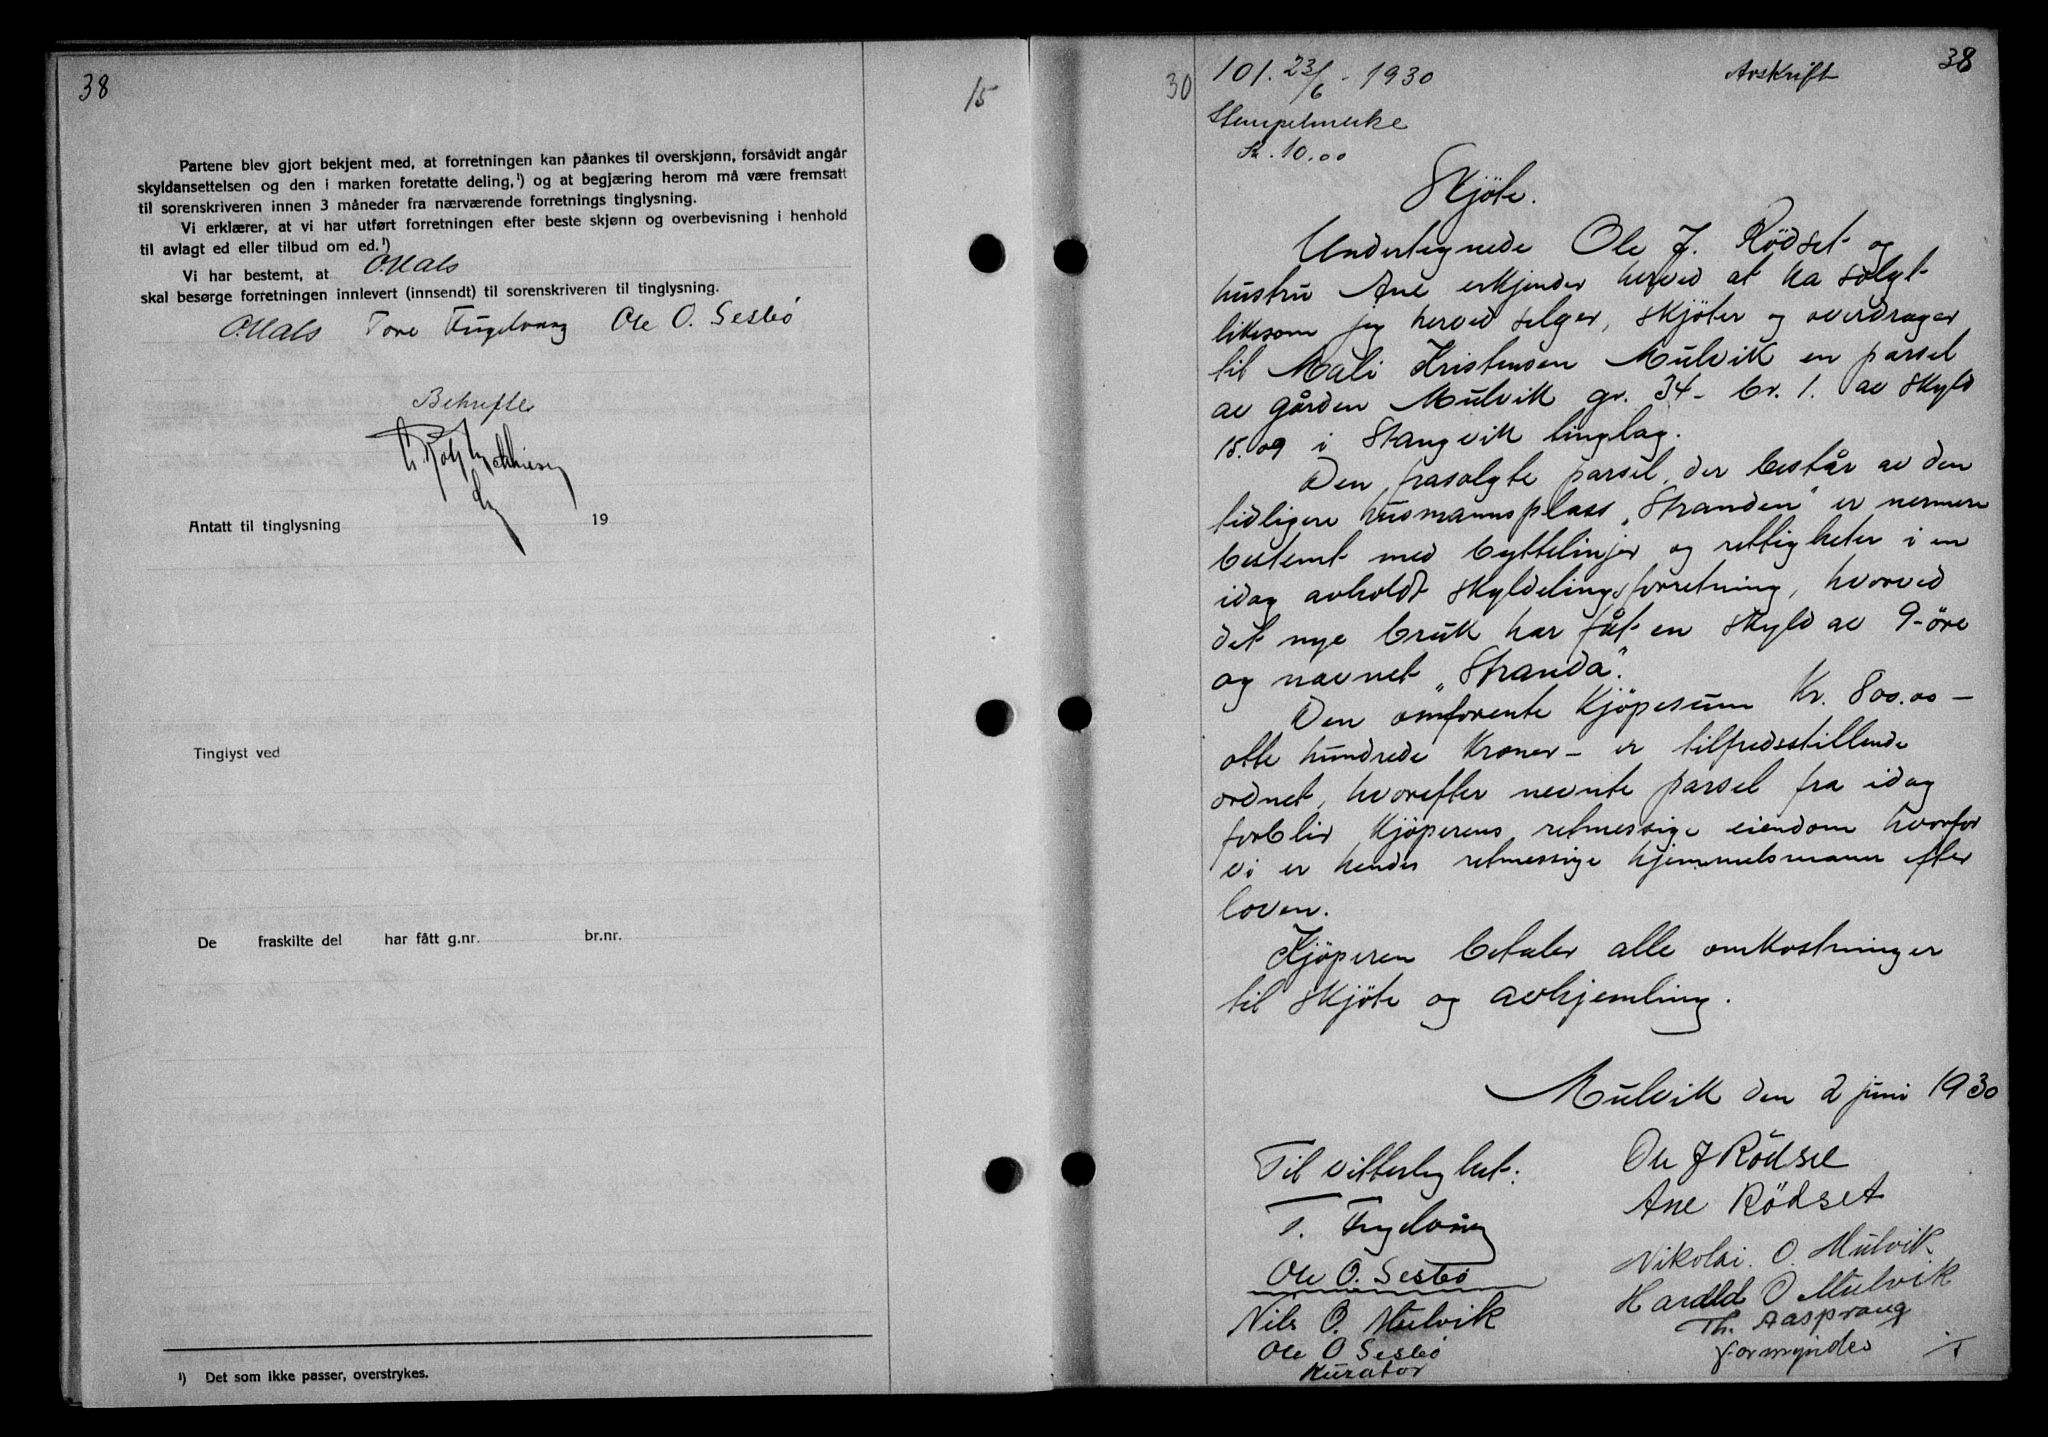 38
15
Partene blev gjort bekjent med, at forretningen kan påankes til overskjønn, forsåvidt angår
skyldansettelsen og den i marken foretatte deling,¹) og at begjæring herom må være fremsatt
til sorenskriveren innen 3 måneder fra nærværende forretnings tinglysning.
Vi erklærer, at vi har utført forretningen efter beste skjønn og overbevisning i henhold
til avlagt ed eller tilbud om ed.¹)
Vi har bestemt, at O. Mals
skal besørge forretningen innlevert (innsendt) til sorenskriveren til tinglysning.
O. Mals Tore Fugelvaag Ole O. Sesbö
Bekreftes
Antatt til tinglysning 19
Tinglyst ved
De fraskilte del har fått g.nr. br.nr.
¹) Det som ikke passer, overstrykes.
30
101. 23/6 - 1930 Avskrift 38
Stempelmerke
Kr. 10.00
Skjöte.
Undertegnede Ole J. Rödset og
hustru Ane erkjender herved at ha solgt
likesom jeg herved selger, skjöter og overdrager
til Mali Kristensen Mulvik en parsel
av gården Mulvik gr. 34 - br. 1. av skyld
15.09 i Stangvik tinglag.
Den frasolgte parsel, der består av den
tidligere husmannsplass „Stranden" er nermere
bestemt med byttelinjer og rettigheter i en
idag avholdt skyldelingsforretning, hvorved
det nye bruk har fåt en skyld av 9-öre
og navnet „Stranda".
Den omforente kjöpesum kr. 800.00 -
otte hundrede kroner - er tilfredsstillende
ordnet, hvorefter nevnte parsel fra idag
forblir kjöperens retmessige eiendom hvorfor
vi er hendes retmessige hjemmelsmann efter
loven.
Kjöperen betaler alle omkostninger
til skjöte og avhjemling.
Mulvik den 2 juni 1930
Til vitterlighet:
T. Fugelvåg
Ole O. Sesbö
Nils O. Mulvik
Ole O Sesbö
Kurator
Ole J Rödset
Ane Rödset
Nikolai. O. Mulvik.
Harald O Mulvik
Th. Aasprang
formynder